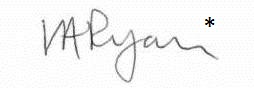 MARyan *